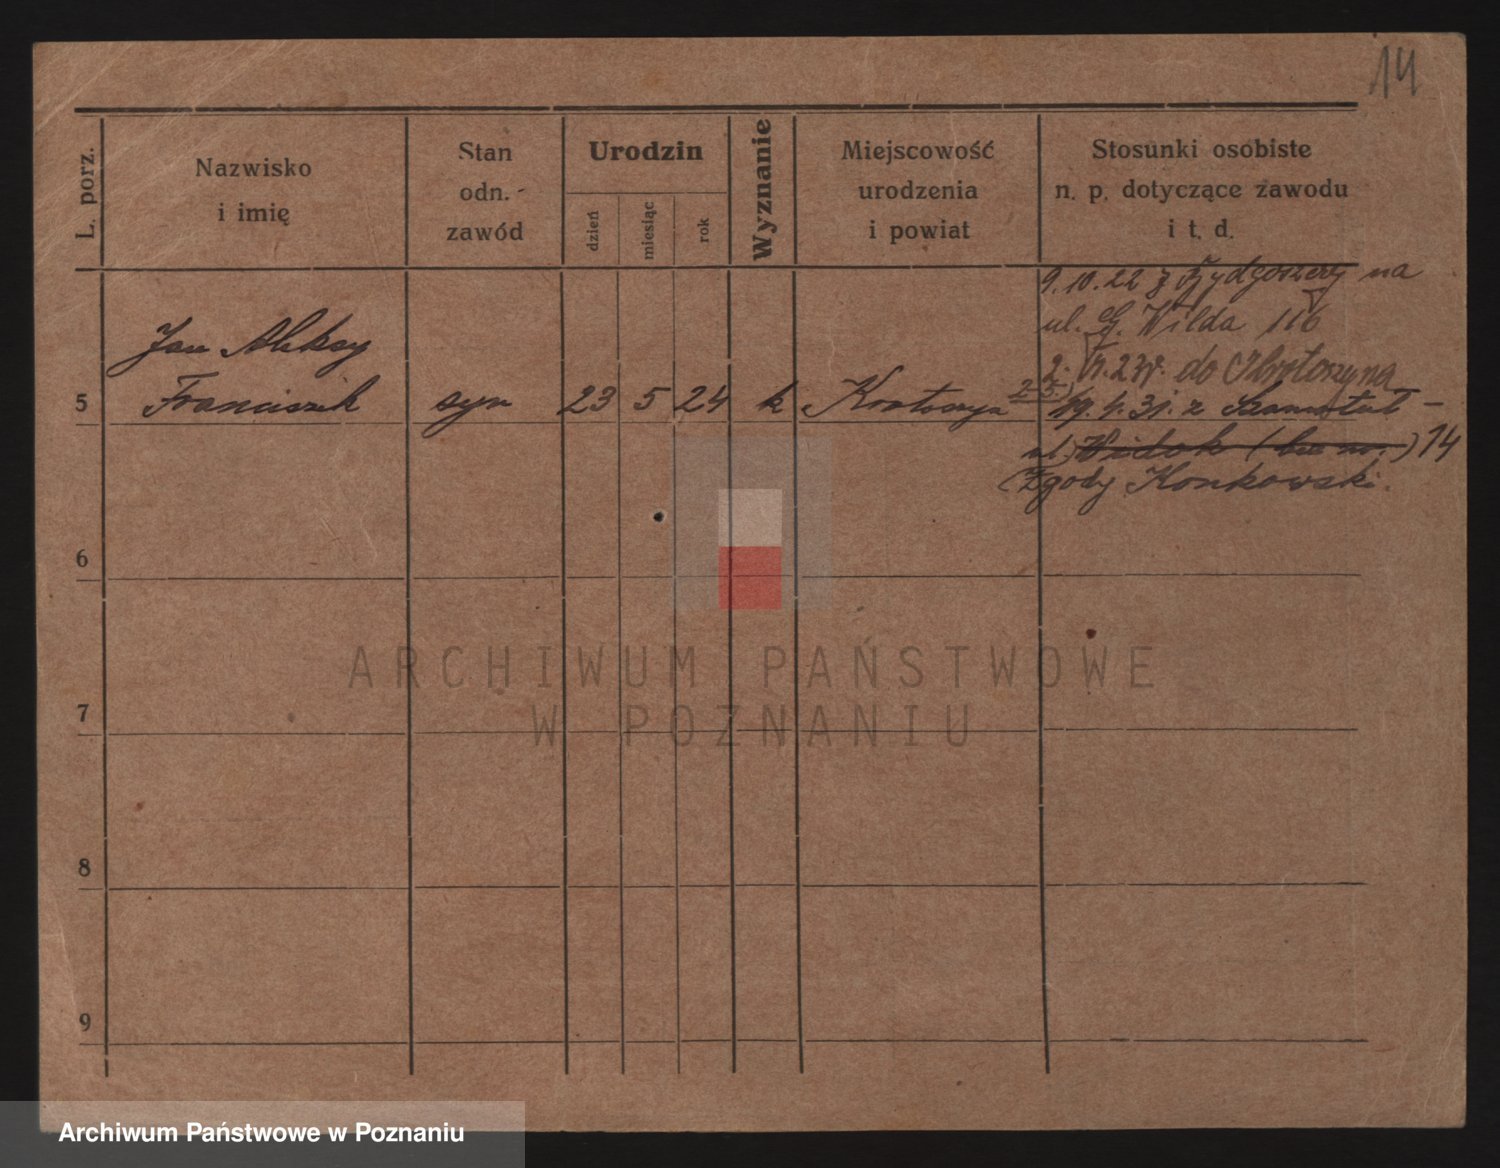 14
L. porz.
Nazwisko
i imię
Stan
odn.
zawód
Urodzin
dzień
miesiąc
rok
Wyznanie
Miejscowość
urodzenia
i powiat
Stosunki osobiste
n. p. dotyczące zawodu
i t. d.
9.10.22 z Bydgoszczy na
ul. G. Wilda 116
do Krotoszyna
Jan Aleksy
5 Franciszek syn 23 5 24 k Krotoszyn
19.4.31. z Szamotuł -
ul. Widok (bez nr.) 14
Zgody Konkowski.
6
7
8
9
ARCHIWUM PAŃSTWOWE
W POZNANIU
Archiwum Państwowe w Poznaniu